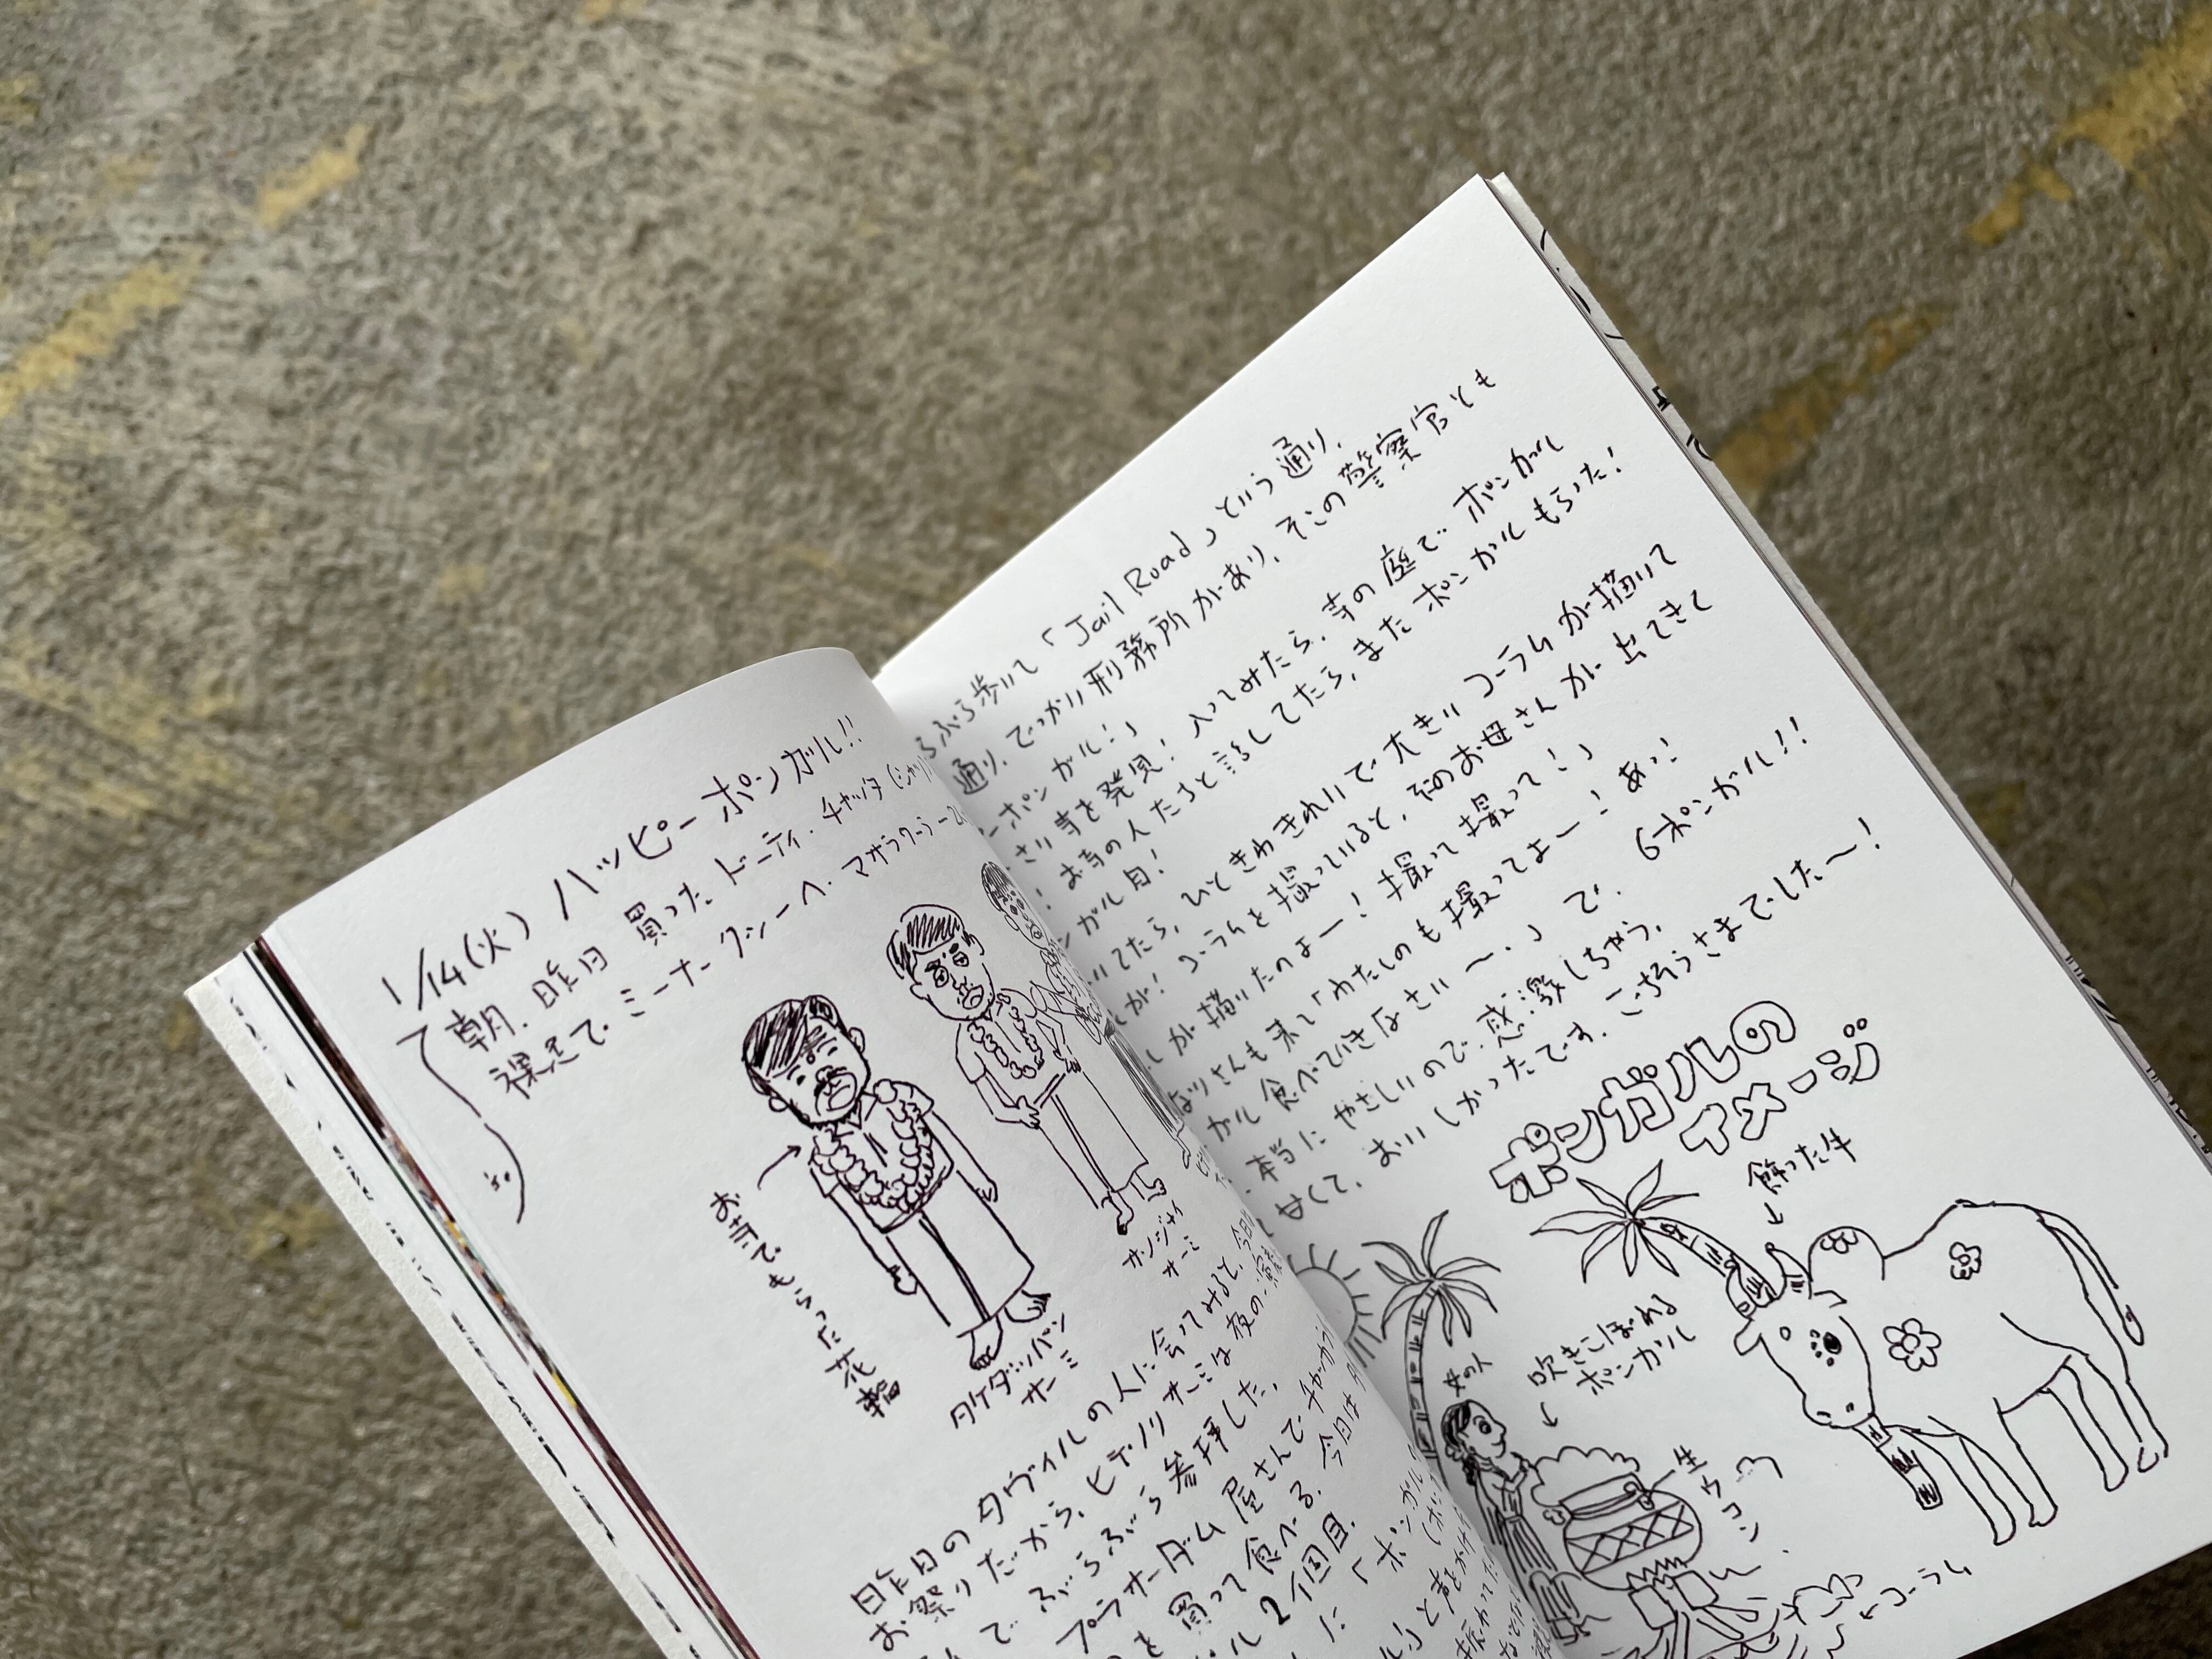 1/14(火) ハッピーポンガル!!
朝、昨日買ったドーティ・チャッタ(シャツ)
裸足でミーナークシーへ。マオラクーラー
お寺でもらった花輪
タケダッパンサーミ
サンジャイサーミ
昨日のタヴィルの人に会ってみると、今日
お祭りだから、ヒデノリサーミは夜の演奏
で ぶらぶら参拝した。
プラサーダム屋さんで
を買って食べる。今日は
ル2個目。
に「ポンガル
ル!」と声を
ぶらぶら歩いて「Jail Road」という通り、
通り、でっかい刑務所があり、その警察官とも
ーポンガル!」
さい寺を発見!入ってみたら、寺の庭で ポンガル
!お寺の人たちと話してたら、またポンガルもらった!
ンガル目!
いてたら、ひときわきれいで大きいコーラムが描いて
が!コーラムを撮っていると、そのお母さんが出てきて
しが描いたのよー!撮って撮って!」
なりさんも来て「わたしのも撮ってよー!あっ!
ガル食べていきなさい〜。」で、6ポンガル!!
本当にやさしいので、感激しちゃう。
甘くて、おいしかったです。ごちそうさまでした〜!
ポンガルの
イメージ
飾った牛
吹きこぼれる
ポンガル
女の人
生ウコン
コーラム